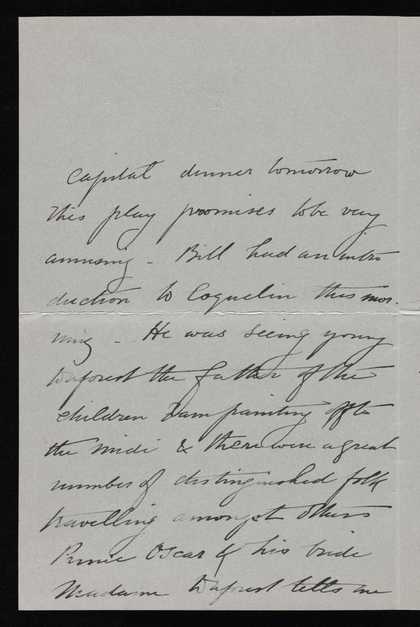 capital dinner tomorrow
this play promises to be very
amusing - Bill had an intro
duction to Coquelin this mor-
ning - He was seeing young
Daforest the father of the
children I am painting off to
the Midi & there were a great
number of distinguished folk
travelling amongst others
Prince Oscar & his bride
Madame Daforest tells me